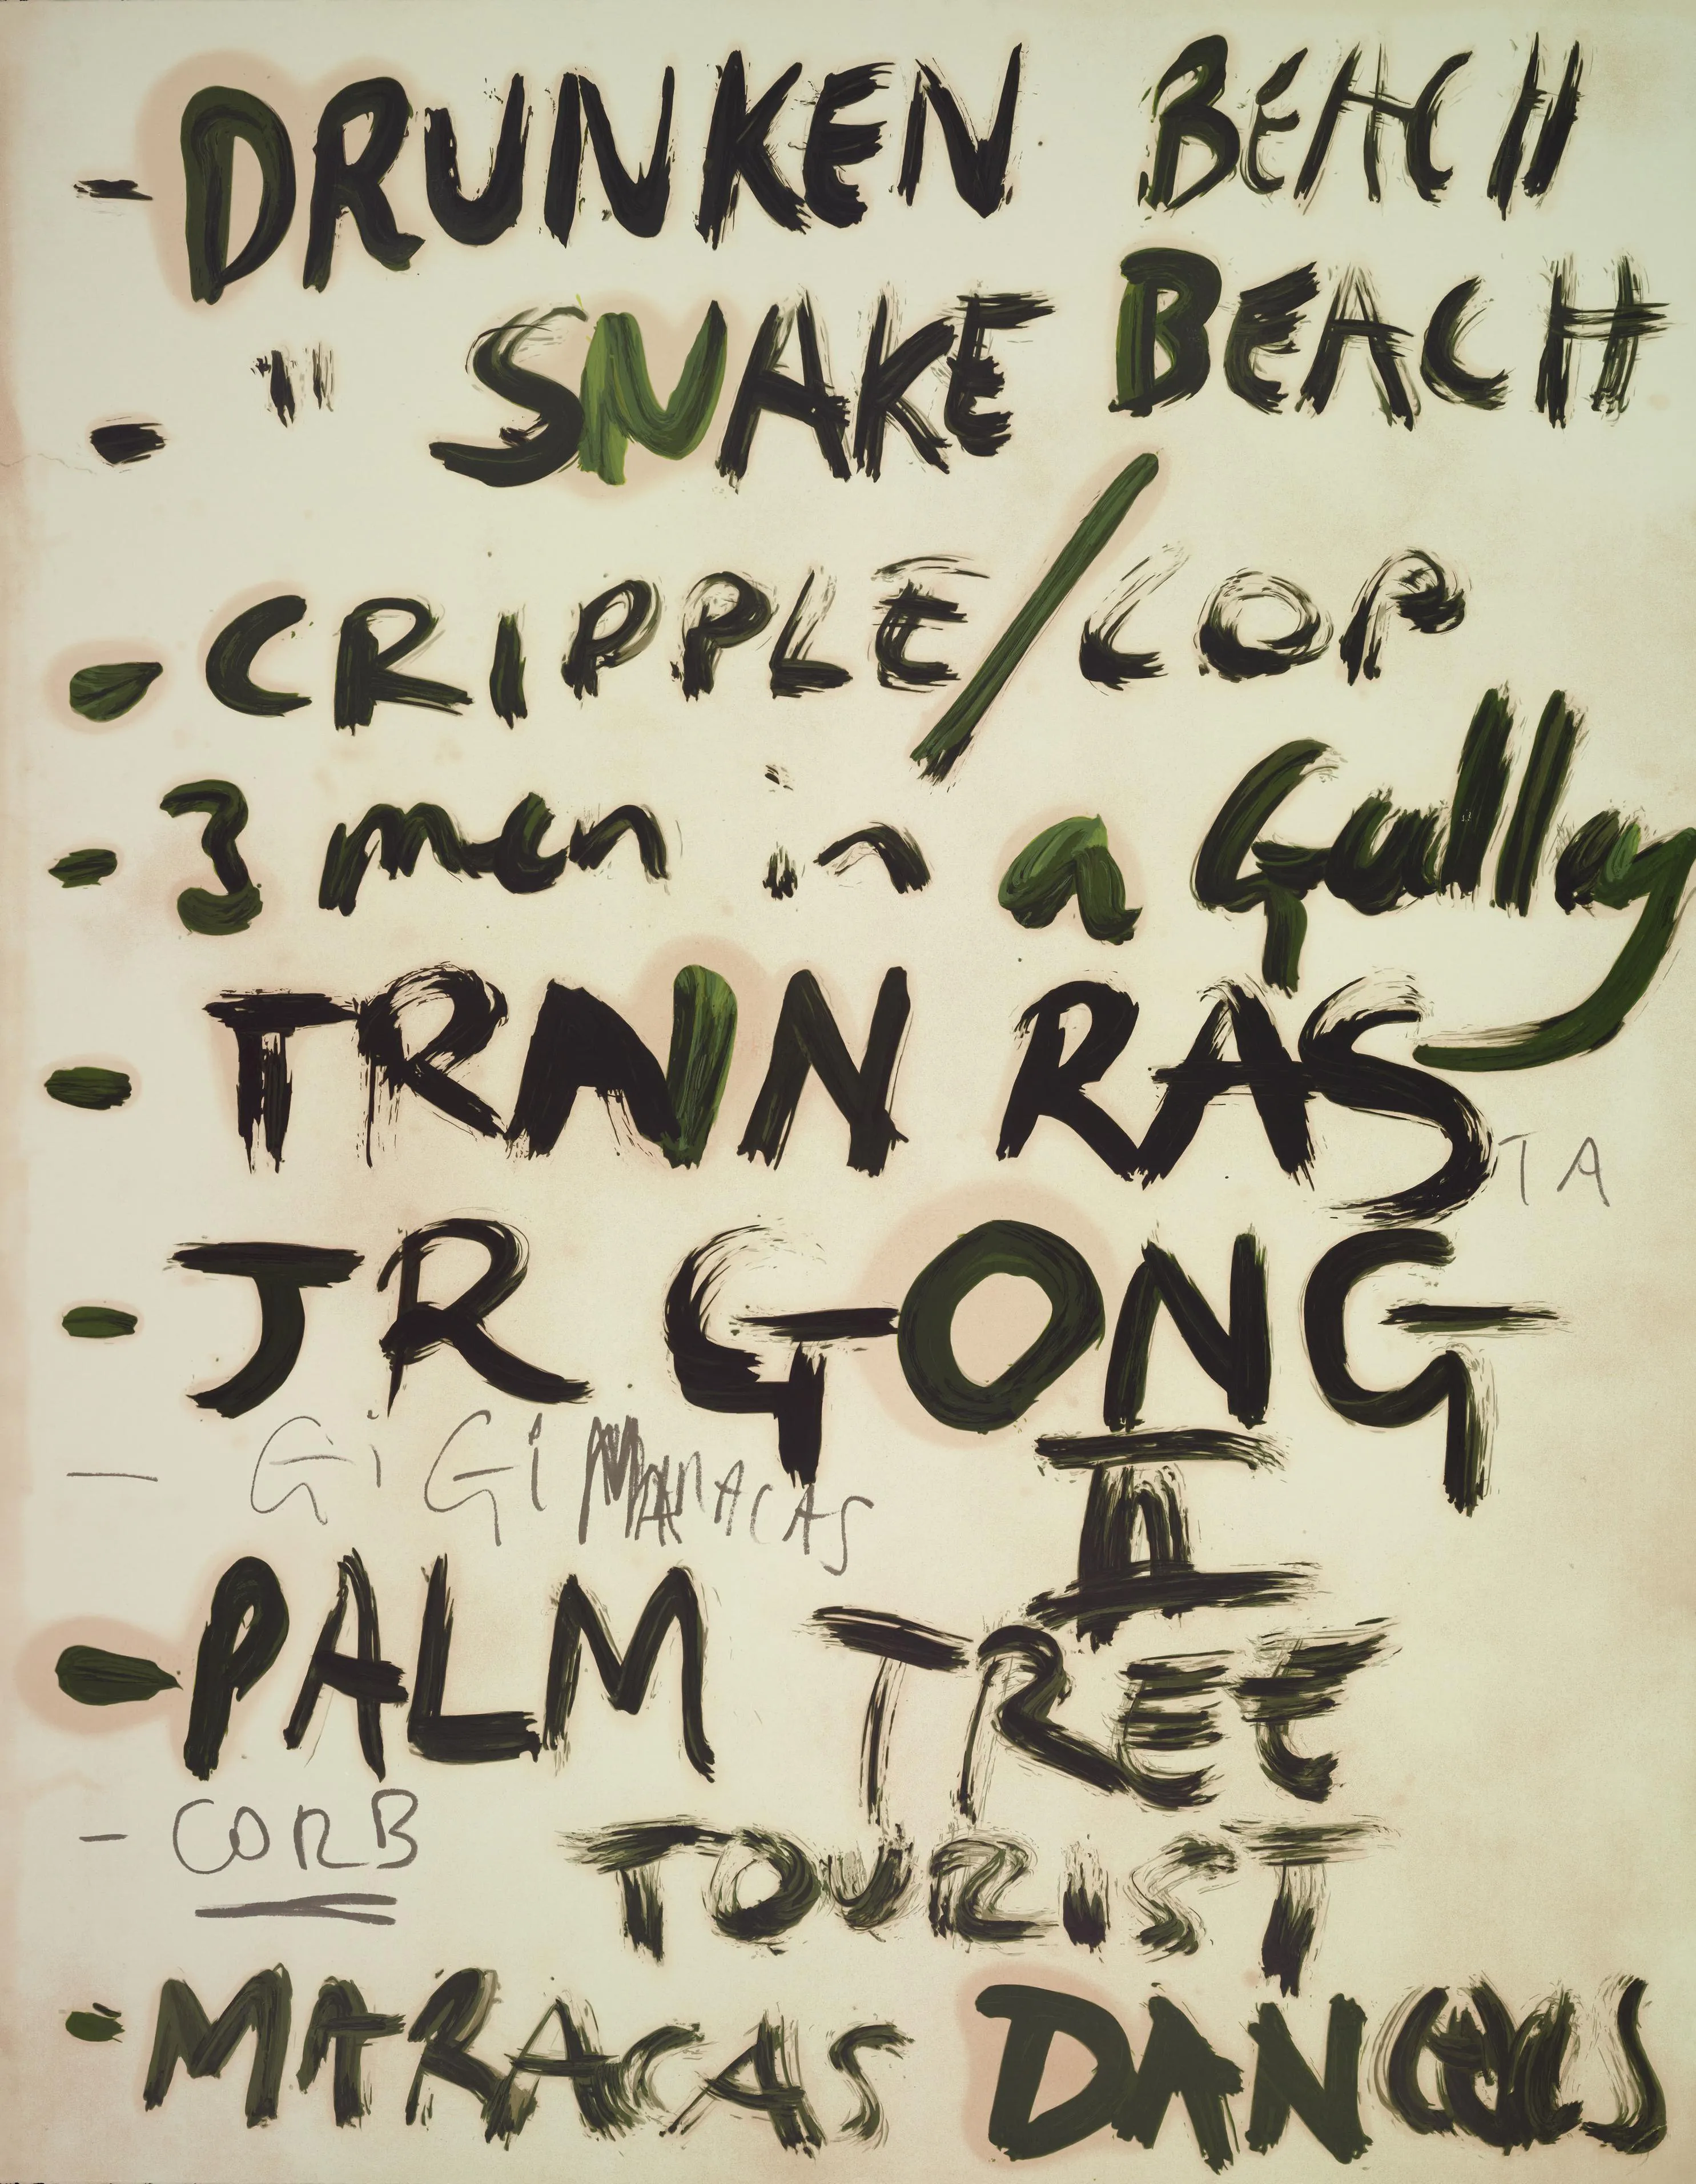 - DRUNKEN BEACH
- " SNAKE BEACH
- CRIPPLE/COP
- 3 men in a Gully
- TRAIN RASTA
- JR GONG
- GiGi MARACAS
II
- PALM TREE
- CORB
TOURIST
- MARACAS